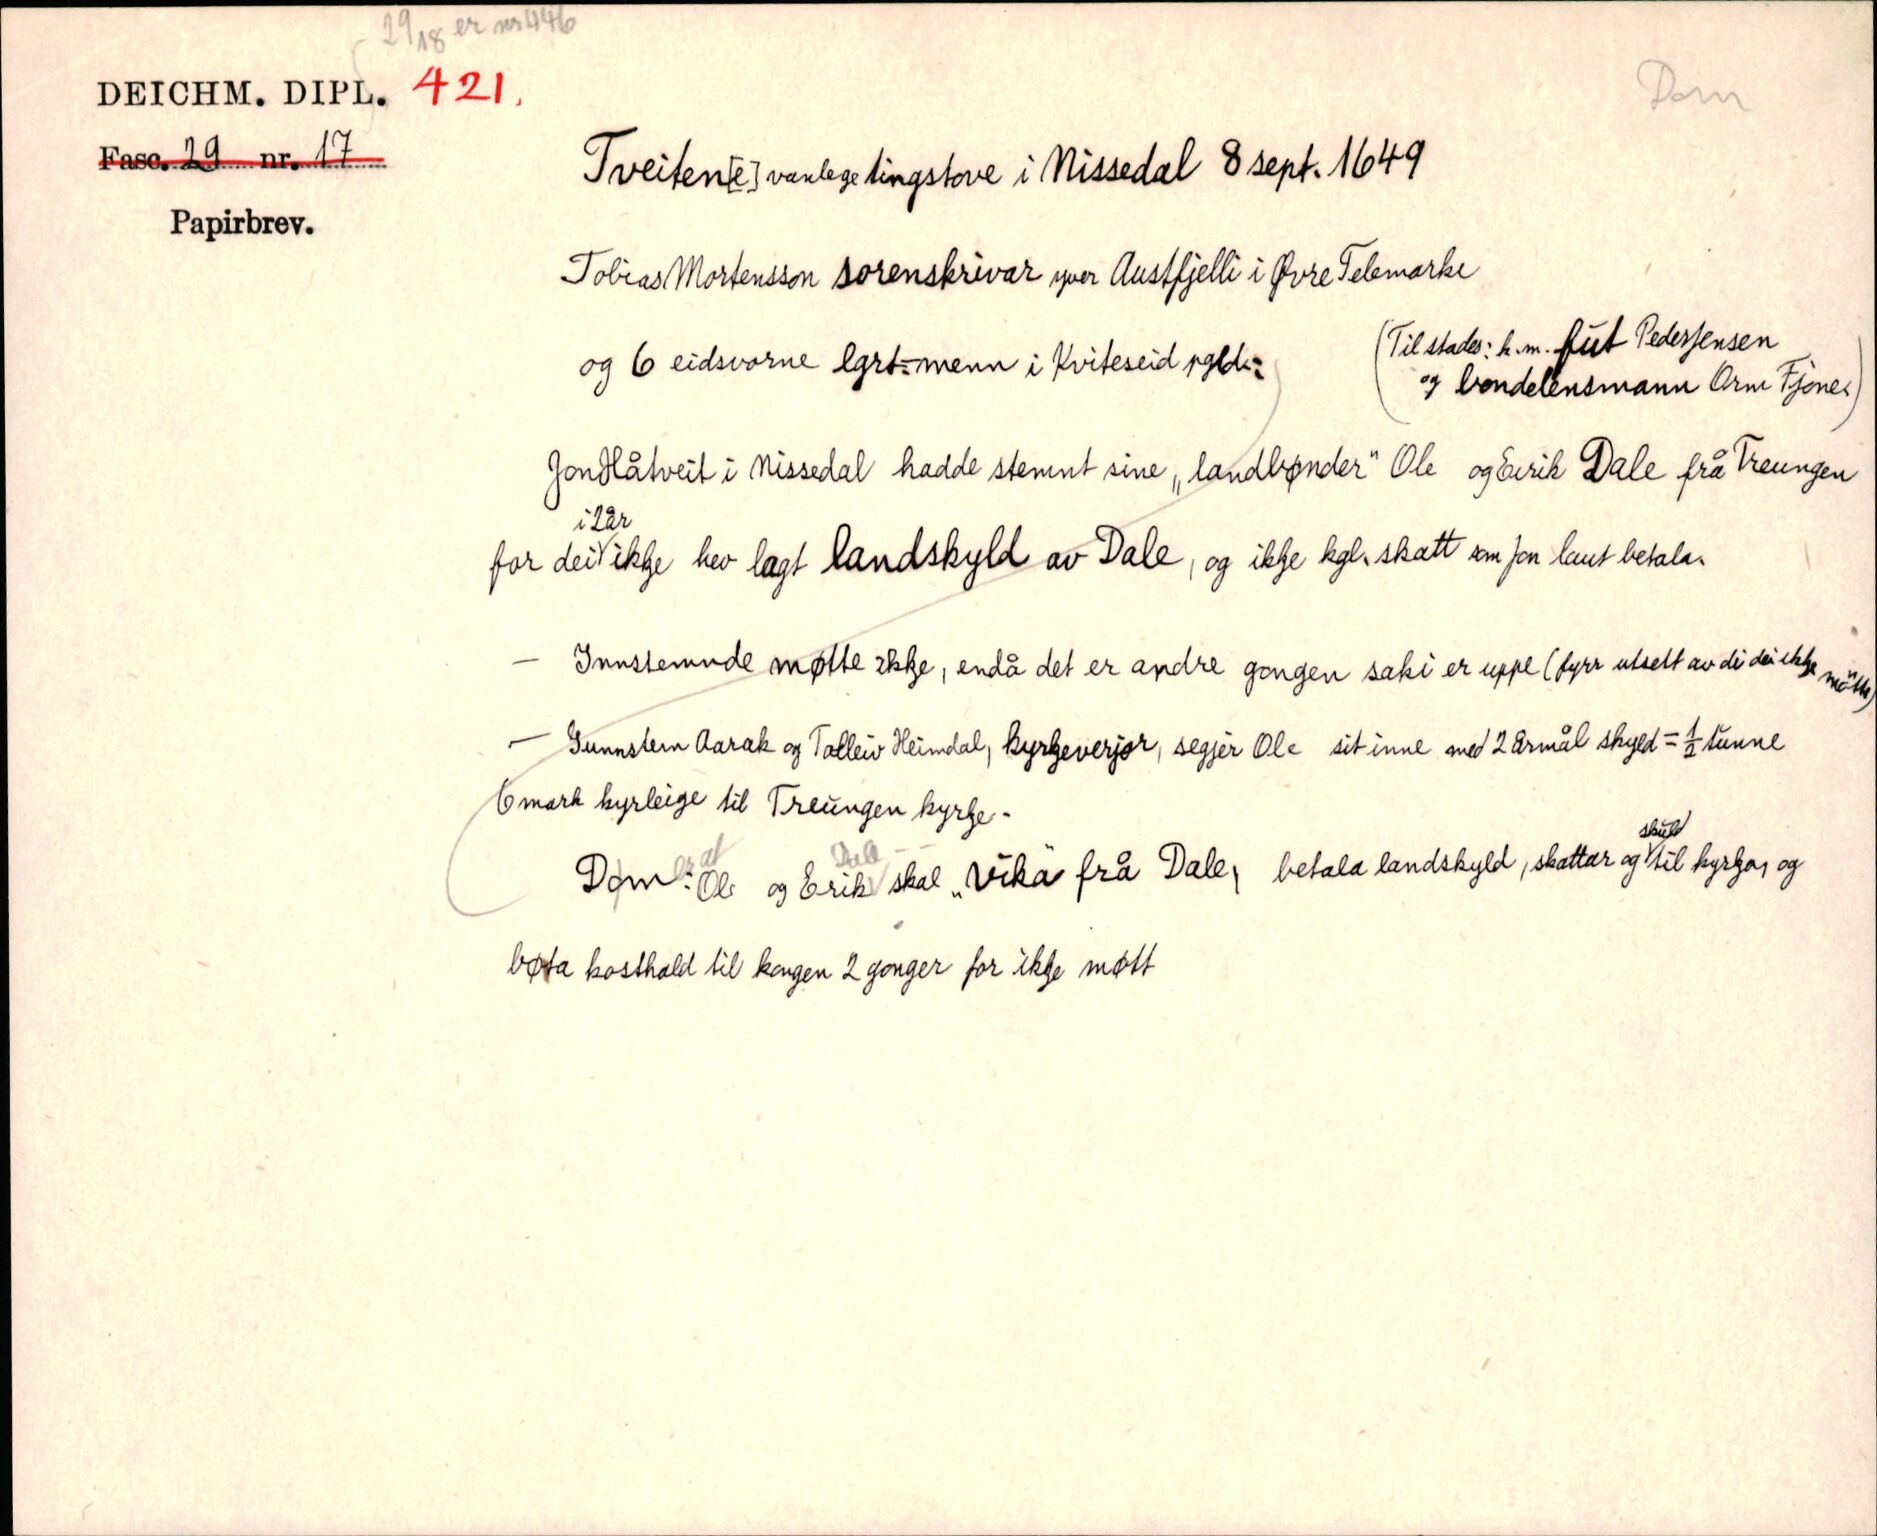 29/18 er nr 446
DEICHM. DIPL. 421.
Dom
Fasc. 29 nr. 17
Papirbrev.
Tveiten[e] vanlege tingstove i Nissedal 8 sept. 1649
Tobias Mortensson sorenskrivar yver Austfjelli i Øvre Telemarki
og 6 eidsvorne lgrt=menn i Kviteseid pgld.:
(Til stades: k.m. fut Peder Jensen
og bondelensmann Orm Fjone.)
Jon Håtveit i Nissedal hadde stemnt sine „landbønder" Ole og Eirik Dale frå Treungen
i 2 år
for dei ikkje hev lagt landskyld av Dale, og ikkje kgl. skatt som Jon laut betala.
— Innstemnde møtte ikkje, endå det er andre gongen saki er uppe (fyrr utsett av di dei ikkje møtte)
— Gunnstein Aarak og Tolleiv Heimdal, kyrkjeverjor, segjer Ole sit inne med 2 årmål skyld = 1/2 tunne
6 mark kyrleige til Treungen kyrkje.
er at Dale skuld
Dom: Ole og Erik skal „vika" frå Dale, betala landskyld, skattar og til kyrkja, og
bøta kosthald til kongen 2 gonger for ikkje møtt